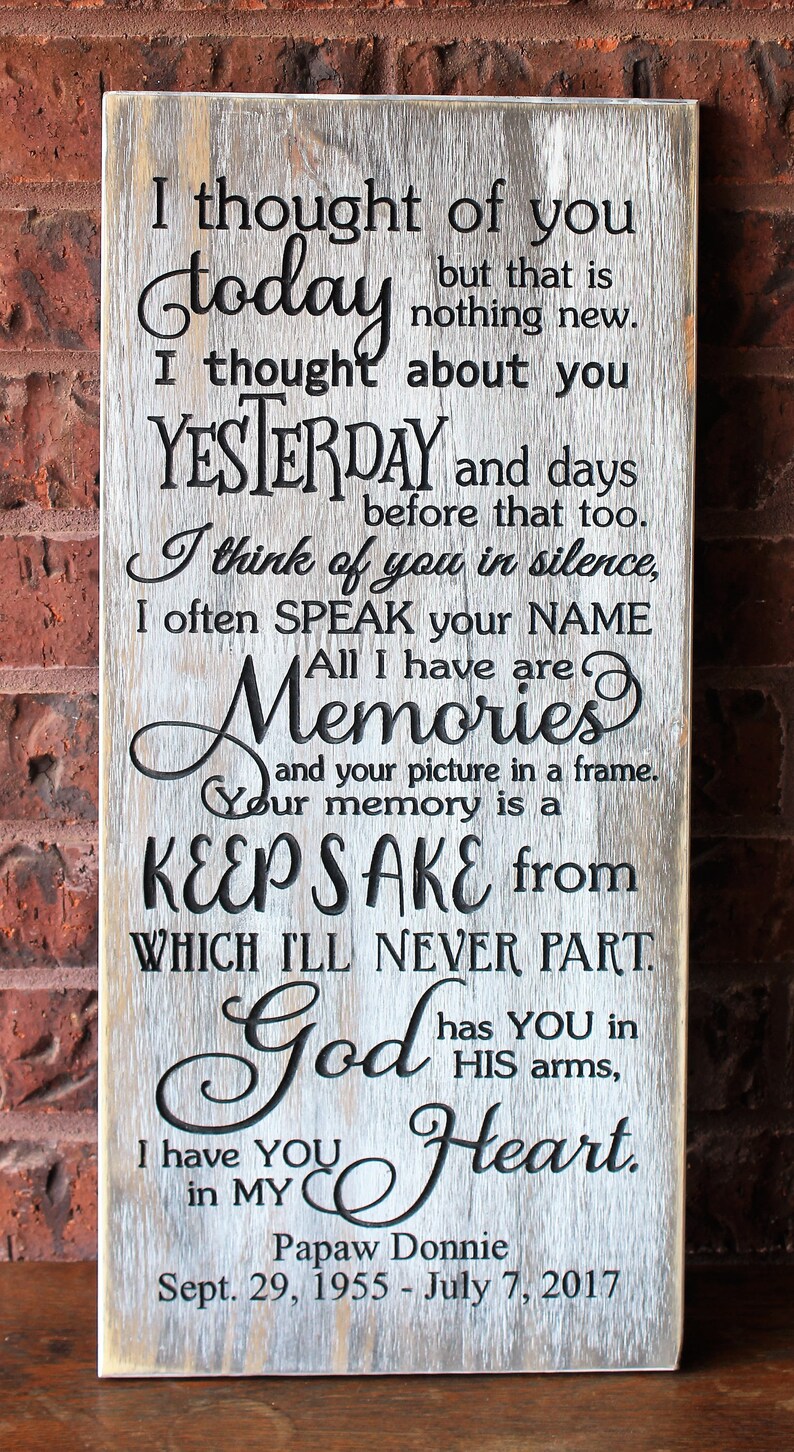 I thought of you
today but that is
nothing new.
I thought about you
YESTERDAY and days
before that too.
I think of you in silence,
I often SPEAK your NAME
All I have are
Memories
and your picture in a frame.
Your memory is a
KEEPSAKE from
WHICH I'LL NEVER PART.
God has YOU in
HIS arms,
I have YOU
in MY Heart.
Papaw Donnie
Sept. 29, 1955 - July 7, 2017